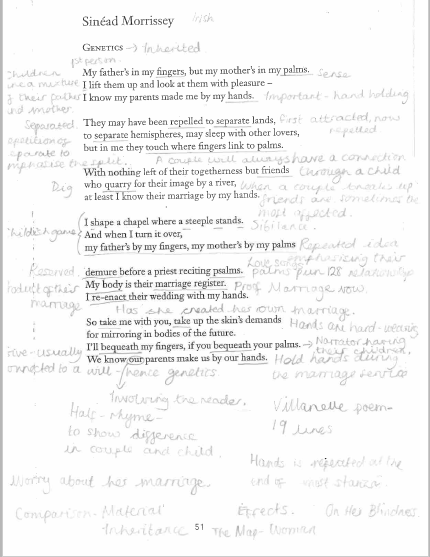 Sinéad Morrissey Irish
GENETICS → Inherited
1st person
Children
My father's in my fingers, but my mother's in my palms. Sense
are a mixture I lift them up and look at them with pleasure –
of their father I know my parents made me by my hands. Important - hand holding
and mother.
Separated. They may have been repelled to separate lands, first attracted, now
repetition of to separate hemispheres, may sleep with other lovers, repelled
separate to but in me they touch where fingers link to palms.
emphasise the split. A couple will always have a connection
With nothing left of their togetherness but friends through a child
Dig who quarry for their image by a river, When a couple breaks up
at least I know their marriage by my hands. friends are sometimes the
most affected.
I shape a chapel where a steeple stands. Sibilance.
Childish game And when I turn it over,
my father's by my fingers, my mother's by my palms Repeated idea
emphasising their
Reserved. demure before a priest reciting psalms. palms pun 128 relationship
product of their My body is their marriage register. Proof Marriage vow.
marriage I re-enact their wedding with my hands.
Has she created her own marriage.
So take me with you, take up the skin's demands Hands are hard-wearing
for mirroring in bodies of the future.
Give - usually I'll bequeath my fingers, if you bequeath your palms. → Narrator having
their children.
connected to a will - We know our parents make us by our hands. Hold hands during
hence genetics. the marriage service
Involving the reader.
Half-rhyme-
to show difference
in couple and child.
Villanelle poem-
19 lines
Hands is repeated at the
end of most stanzas.
Worry about her marriage.
Comparison - Material Effects. On Her Blindness.
Inheritance 51 The Map-Woman